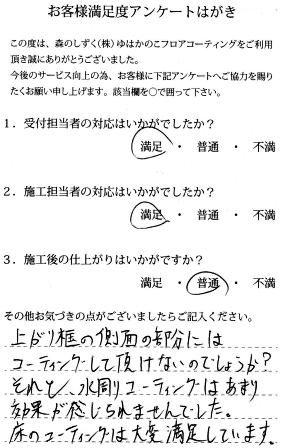 お客様満足度アンケートはがき
この度は、森のしずく(株)ゆはかのこフロアコーティングをご利用
頂き誠にありがとうございました。
今後のサービス向上の為、お客様に下記アンケートへご協力を賜り
たくお願い申し上げます。該当欄を○で囲って下さい。
1．受付担当者の対応はいかがでしたか？
満足 ・ 普通 ・ 不満
2．施工担当者の対応はいかがでしたか？
満足 ・ 普通 ・ 不満
3．施工後の仕上がりはいかがですか？
満足 ・ 普通 ・ 不満
その他お気づきの点がございましたらご記入ください。
上がり框の側面の部分には
コーティングして頂けないのでしょうか？
それと、水周りコーティングはあまり
効果が感じられませんでした。
床のコーティングは大変満足しています。